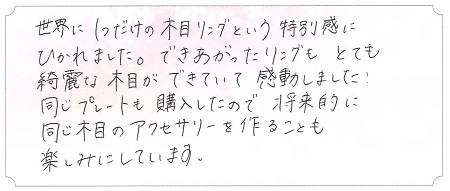 世界に1つだけの木目リングという特別感に
ひかれました。できあがったリングもとても
綺麗な木目ができていて感動しました!
同じプレートも購入したので将来的に
同じ木目のアクセサリーを作ることも
楽しみにしています。